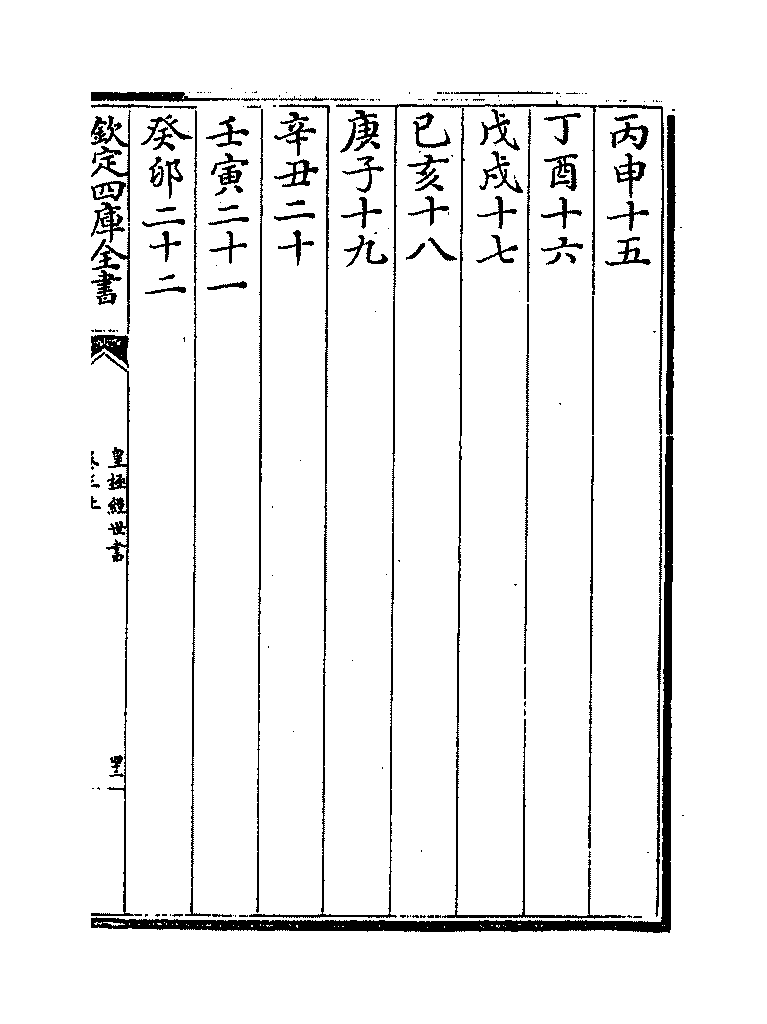 丙申十五
丁酉十六
戊戌十七
己亥十八
庚子十九
辛丑二十
壬寅二十一
癸卯二十二
欽定四庫全書
皇極經世書